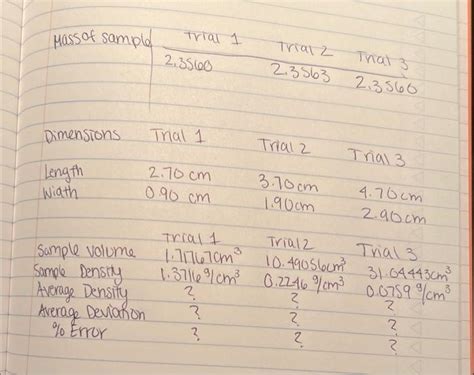 Mass of sample Trial 1 Trial 2 Trial 3
2.3560 2.3563 2.3560
Dimensions Trial 1 Trial 2 Trial 3
Length 2.70 cm 3.70 cm 4.70 cm
Width 0.90 cm 1.90 cm 2.90 cm
Trial 1 Trial 2 Trial 3
Sample volume 1.7176 cm³ 10.49056 cm³ 31.04443 cm³
Sample Density 1.3716 g/cm³ 0.2246 g/cm³ 0.0759 g/cm³
Average Density ? ? ?
Average Deviation ? ? ?
% Error ? ? ?